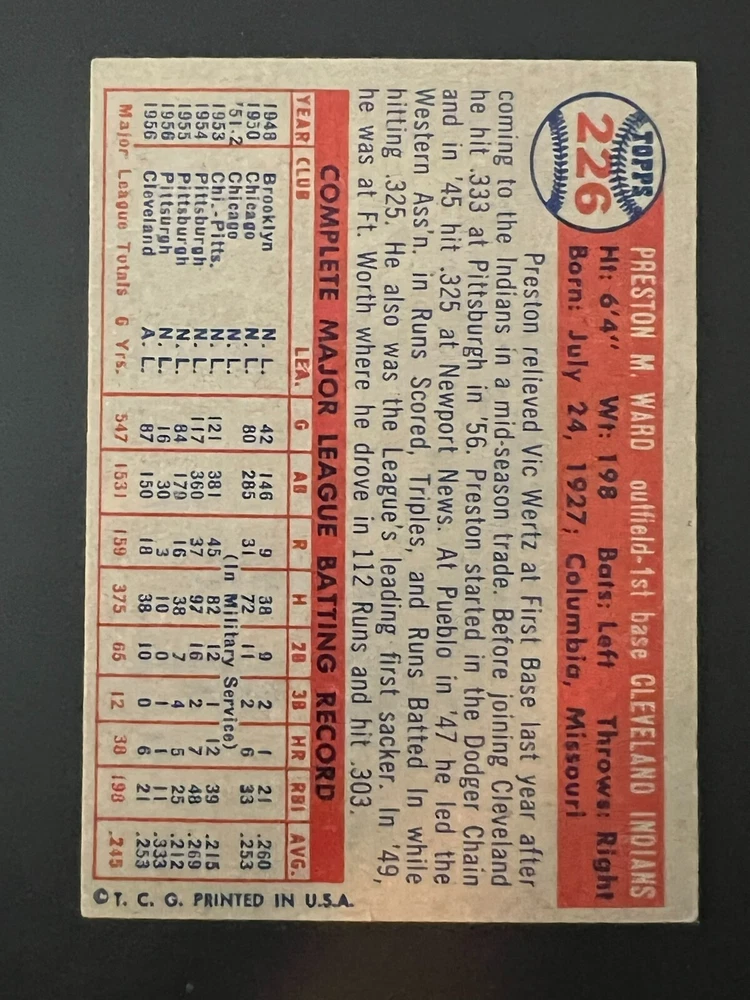 TOPPS
226
PRESTON M. WARD outfield-1st base CLEVELAND INDIANS
Ht: 6'4" Wt: 198 Bats: Left Throws: Right
Born: July 24, 1927; Columbia, Missouri
Preston relieved Vic Wertz at First Base last year after
coming to the Indians in a mid-season trade. Before joining Cleveland
he hit .333 at Pittsburgh in '56. Preston started in the Dodger Chain
and in '45 hit .325 at Newport News. At Pueblo in '47 he led the
Western Ass'n. in Runs Scored, Triples, and Runs Batted In while
hitting .325. He also was the League's leading first sacker. In '49,
he was at Ft. Worth where he drove in 112 Runs and hit .303.
COMPLETE MAJOR LEAGUE BATTING RECORD
YEAR CLUB LEA. G AB R H 2B 3B HR RBI AVG.
1948 Brooklyn N. L. 42 146 9 38 9 2 1 21 .260
1950 Chicago N. L. 80 285 31 72 11 2 6 33 .253
'51-2 Chicago N. L. (In Military Service)
1953 Chi.-Pitts. N. L. 121 381 45 82 12 1 12 39 .215
1954 Pittsburgh N. L. 117 360 37 97 16 2 7 48 .269
1955 Pittsburgh N. L. 84 179 16 38 7 4 5 25 .212
1956 Pittsburgh N. L. 16 30 3 10 0 1 1 11 .333
1956 Cleveland A. L. 87 150 18 38 10 0 6 21 .253
Major League Totals 6 Yrs. 547 1531 159 375 65 12 38 198 .245
© T. C. G. PRINTED IN U.S.A.